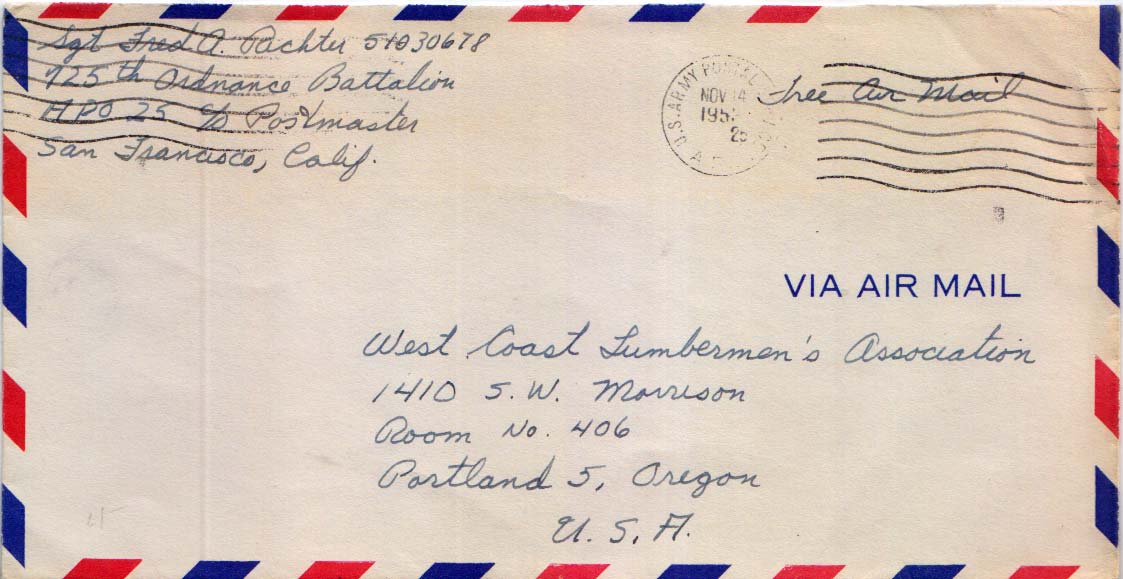 Sgt Fred A. Pachter 51030678
725th Ordnance Battalion
APO 25 c/o Postmaster
San Francisco, Calif.
U.S. ARMY POSTAL
NOV 14
195
25
A.P.
Free Air Mail
VIA AIR MAIL
West Coast Lumbermen's Association
1410 S.W. Morrison
Room No. 406
Portland 5, Oregon
U.S.A.